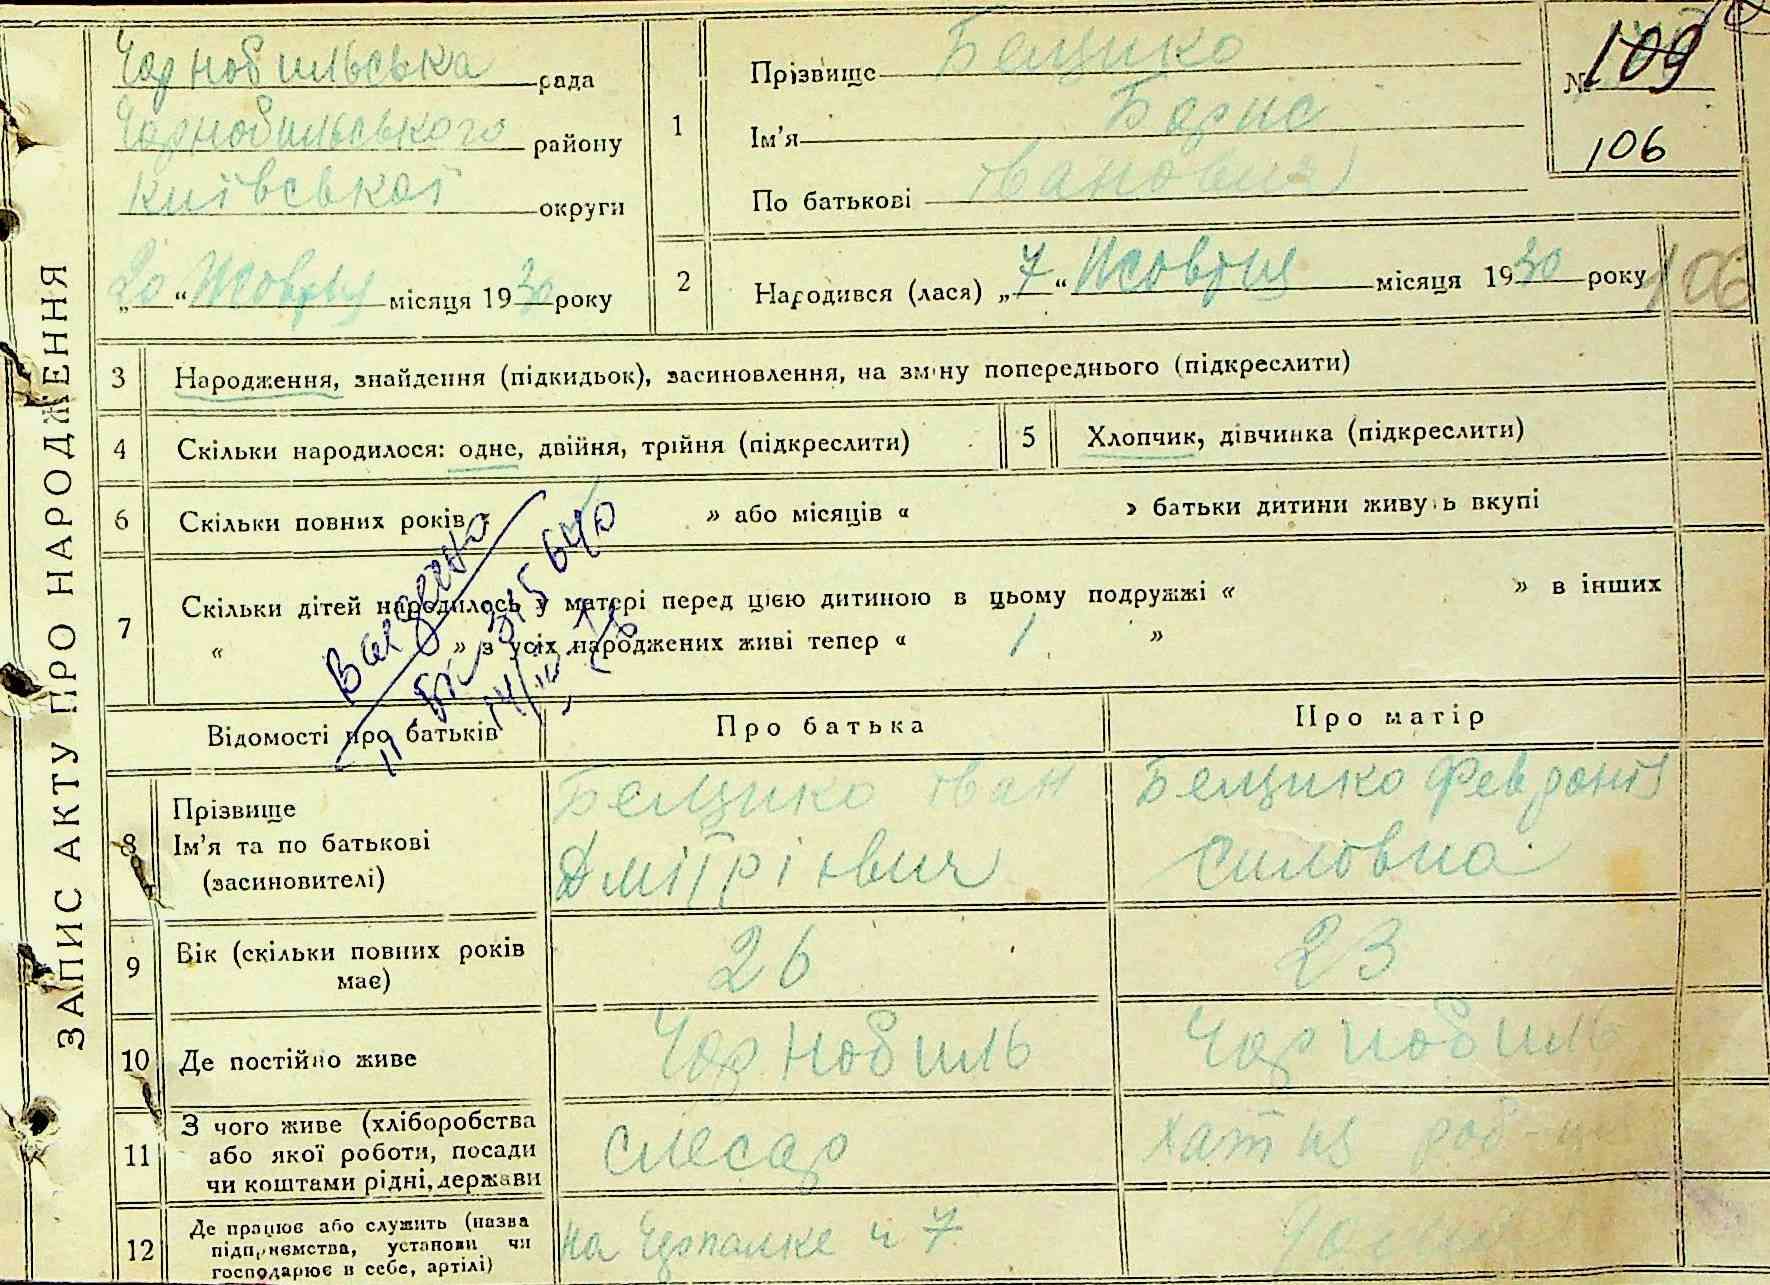 ЗАПИС АКТУ ПРО НАРОДЖЕННЯ
Чорнобильська рада
Чорнобильського району
Київської округи
„20“ Жовтня місяця 1930 року
1
Прізвище Бещико
Ім’я Борис
По батькові Іванович
№ 109
106
2
Народився (лася) „7“ Жовтня місяця 1930 року
106
3 Народження, знайдення (підкидьок), засиновлення, на зміну попереднього (підкреслити)
4 Скільки народилося: одне, двійня, трійня (підкреслити)
5 Хлопчик, дівчинка (підкреслити)
6 Скільки повних років „ » або місяців « » батьки дитини живуть вкупі
7 Скільки дітей народилось у матері перед цією дитиною в цьому подружжі « » в інших
« » з усіх народжених живі тепер « 1 »
Відомості про батьків Про батька Про матір
8 Прізвище
Ім’я та по батькові
(засиновителі)
Бещико Іван
Дмітрієвич
Бещико Февронія
Силовна
9 Вік (скільки повних років має) 26 23
10 Де постійно живе Чорнобиль Чорнобиль
11 З чого живе (хліборобства
або якої роботи, посади
чи коштами рідні, держави
слесар
хатня
12 Де працює або служить (назва
підприємства, установи чи
господарює в себе, артілі)
на
7